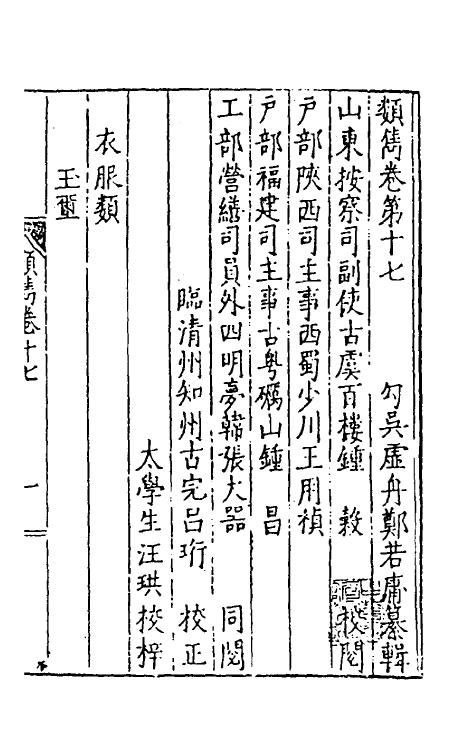 類雋卷第十七　勾吳虛舟鄭若庸纂輯
山東按察司副使古虞百樓鍾　穀　校閱
戶部陝西司主事西蜀少川王用禎
戶部福建司主事古粤礪山鍾　昌
工部營繕司員外四明夢韓張大器　同閱
臨清州知州古完呂珩　校正
太學生汪珙校梓
衣服類
玉璽
類雋卷十七　一